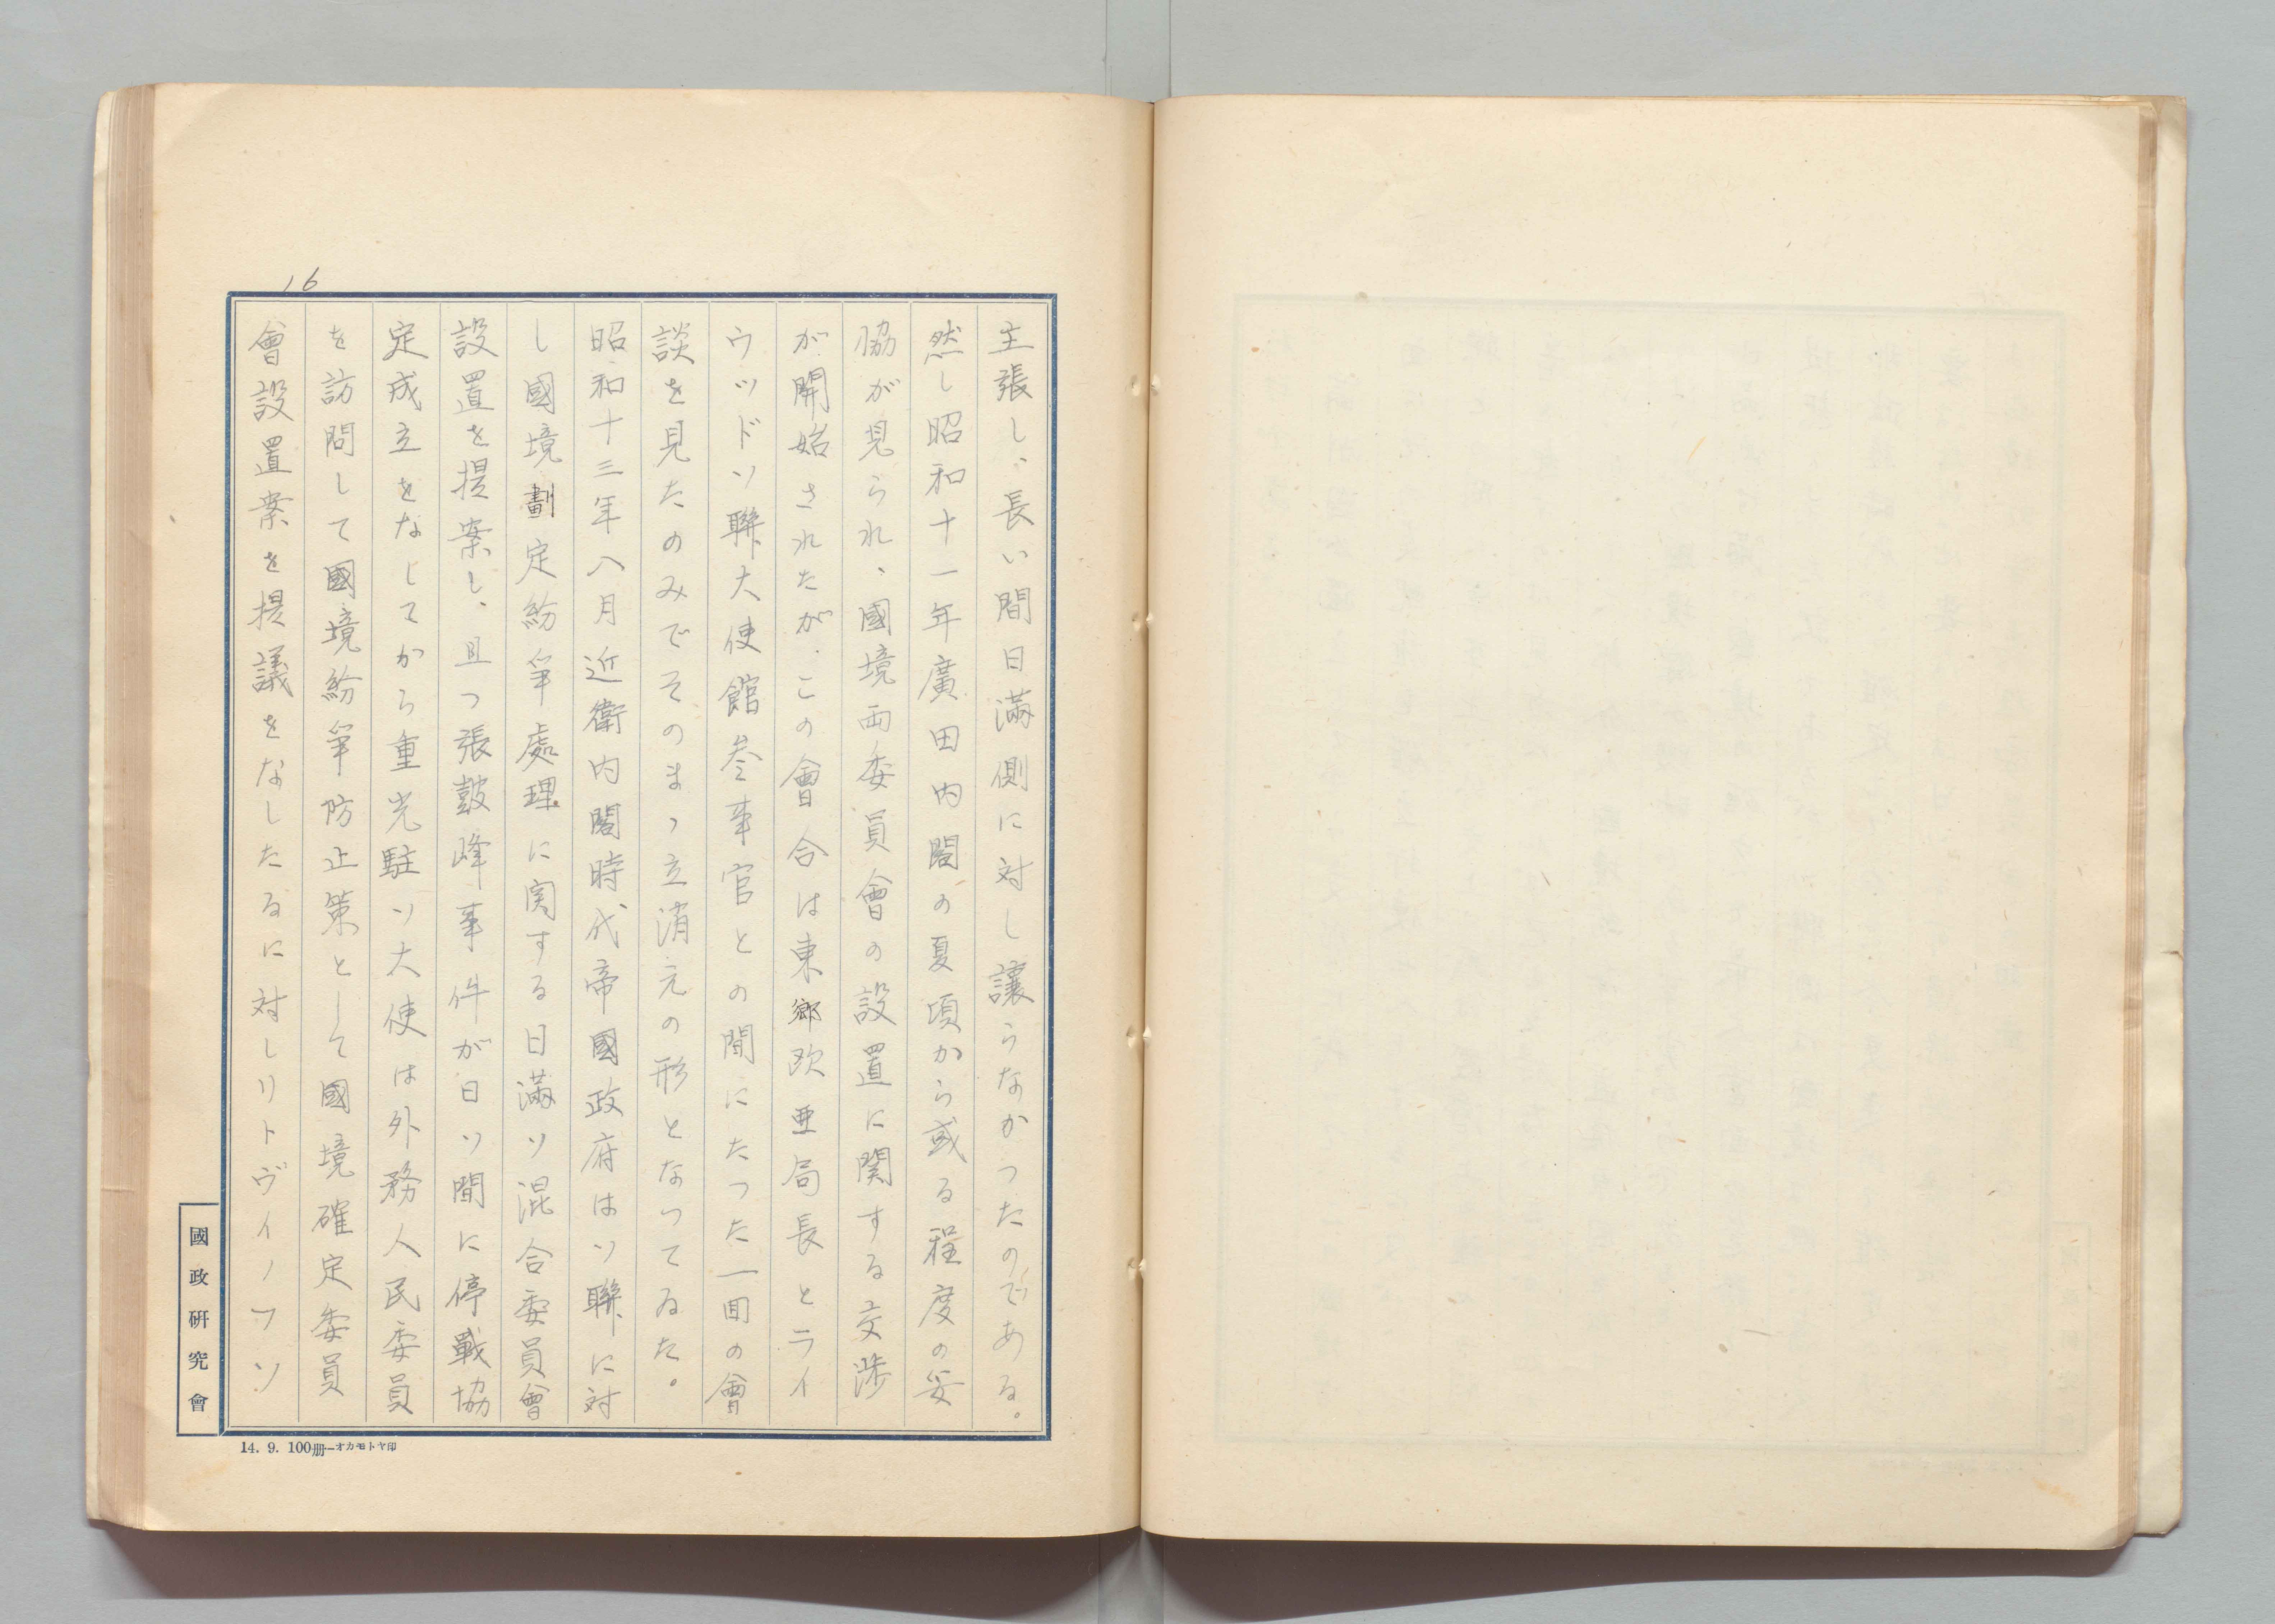 16
主張し、長い間日満側に対し讓らなかつたのである。
然し昭和十一年廣田内閣の夏頃から或る程度の妥
協が見られ、國境両委員會の設置に関する交渉
が開始されたが、この會合は東郷欧亜局長とライ
ウッドソ聯大使館参事官との間にたつた一回の會
談を見たのみでそのまゝ立消元の形となつてゐた。
昭和十三年八月近衛内閣時代帝國政府はソ聯に対
し國境劃定紛争處理に関する日満ソ混合委員會
設置を提案し、且つ張鼓峰事件が日ソ間に停戰協
定成立をなしてから重光駐ソ大使は外務人民委員
を訪問して國境紛争防止策として國境確定委員
會設置案を提議をなしたるに対しリトヴイノフソ
國政研究會
14. 9. 100册—オカモトヤ印